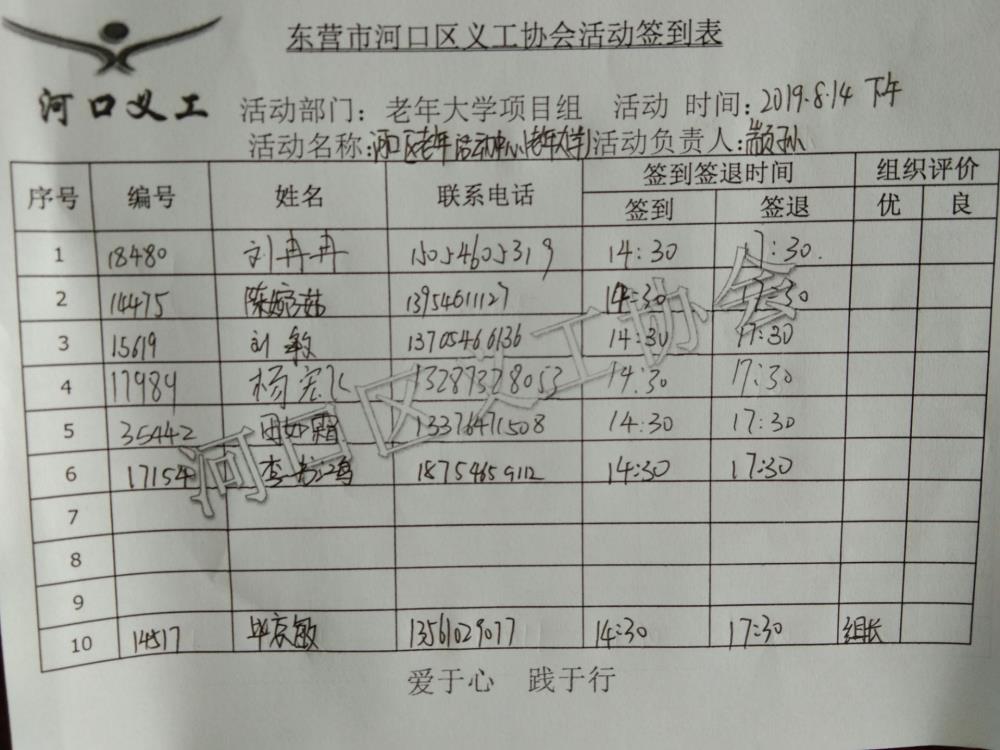 东营市河口区义工协会活动签到表
河口义工
活动部门：老年大学项目组 活动 时间：2019.8.14 下午
活动名称：河口区老年活动中心(老年大学) 活动负责人：
序号 编号 姓名 联系电话 签到签退时间 组织评价
签到 签退 优 良
1 18480 刘冉冉 15054605319 14:30 17:30.
2 14475 陈 13954611127 14:30 17:30
3 15619 刘敏 13705466136 14:30 17:30
4 17989 杨宪飞 13287328053 14:30 17:30
5 35442 田如霜 13376471508 14:30 17:30
6 17154 李 18754659112 14:30 17:30
7
8
9
10 14517 毕京敏 13561029077 14:30 17:30 组长
爱于心 践于行
河口区义工协会